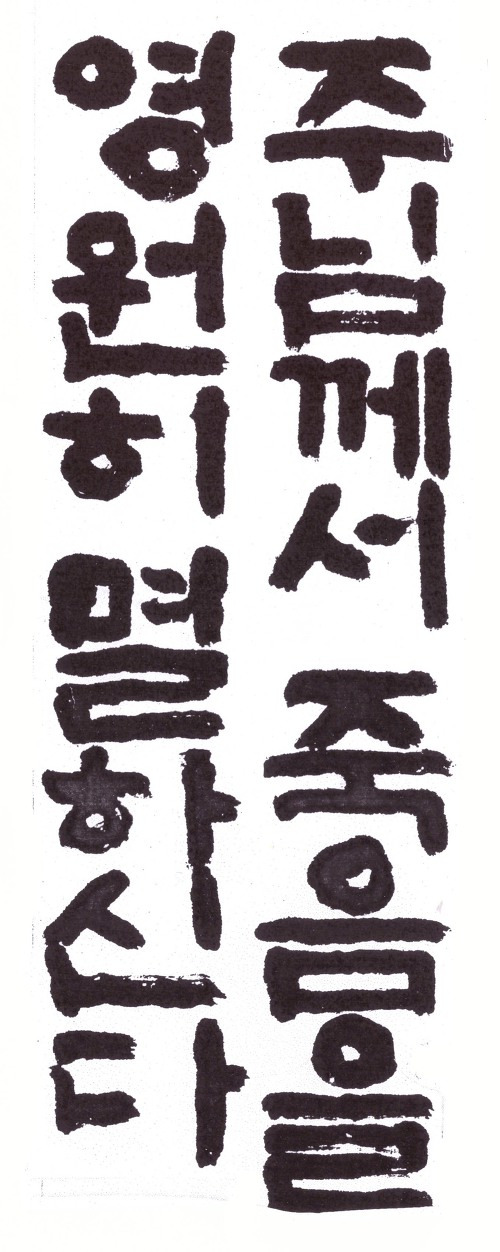 주님께서 죽음을
영원히 멸하신다